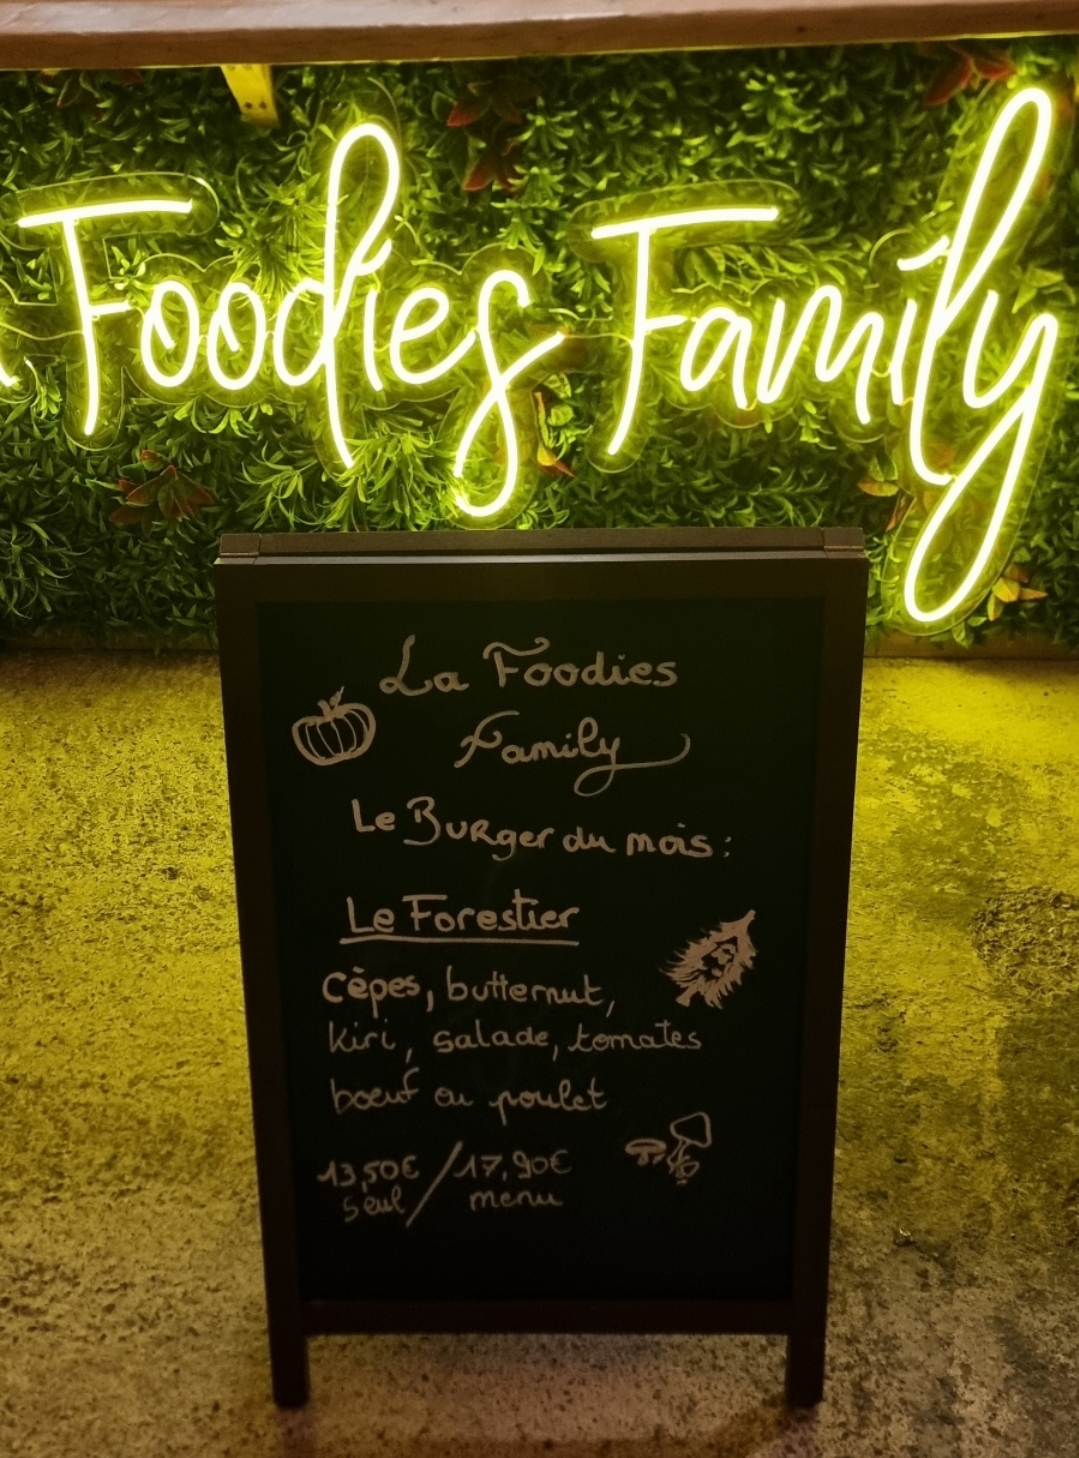 Foodies Family
La Foodies
Family
Le Burger du mois :
Le Forestier
Cèpes, butternut,
kiri, salade, tomates
boeuf ou poulet
13,50€ / 17,90€
seul menu